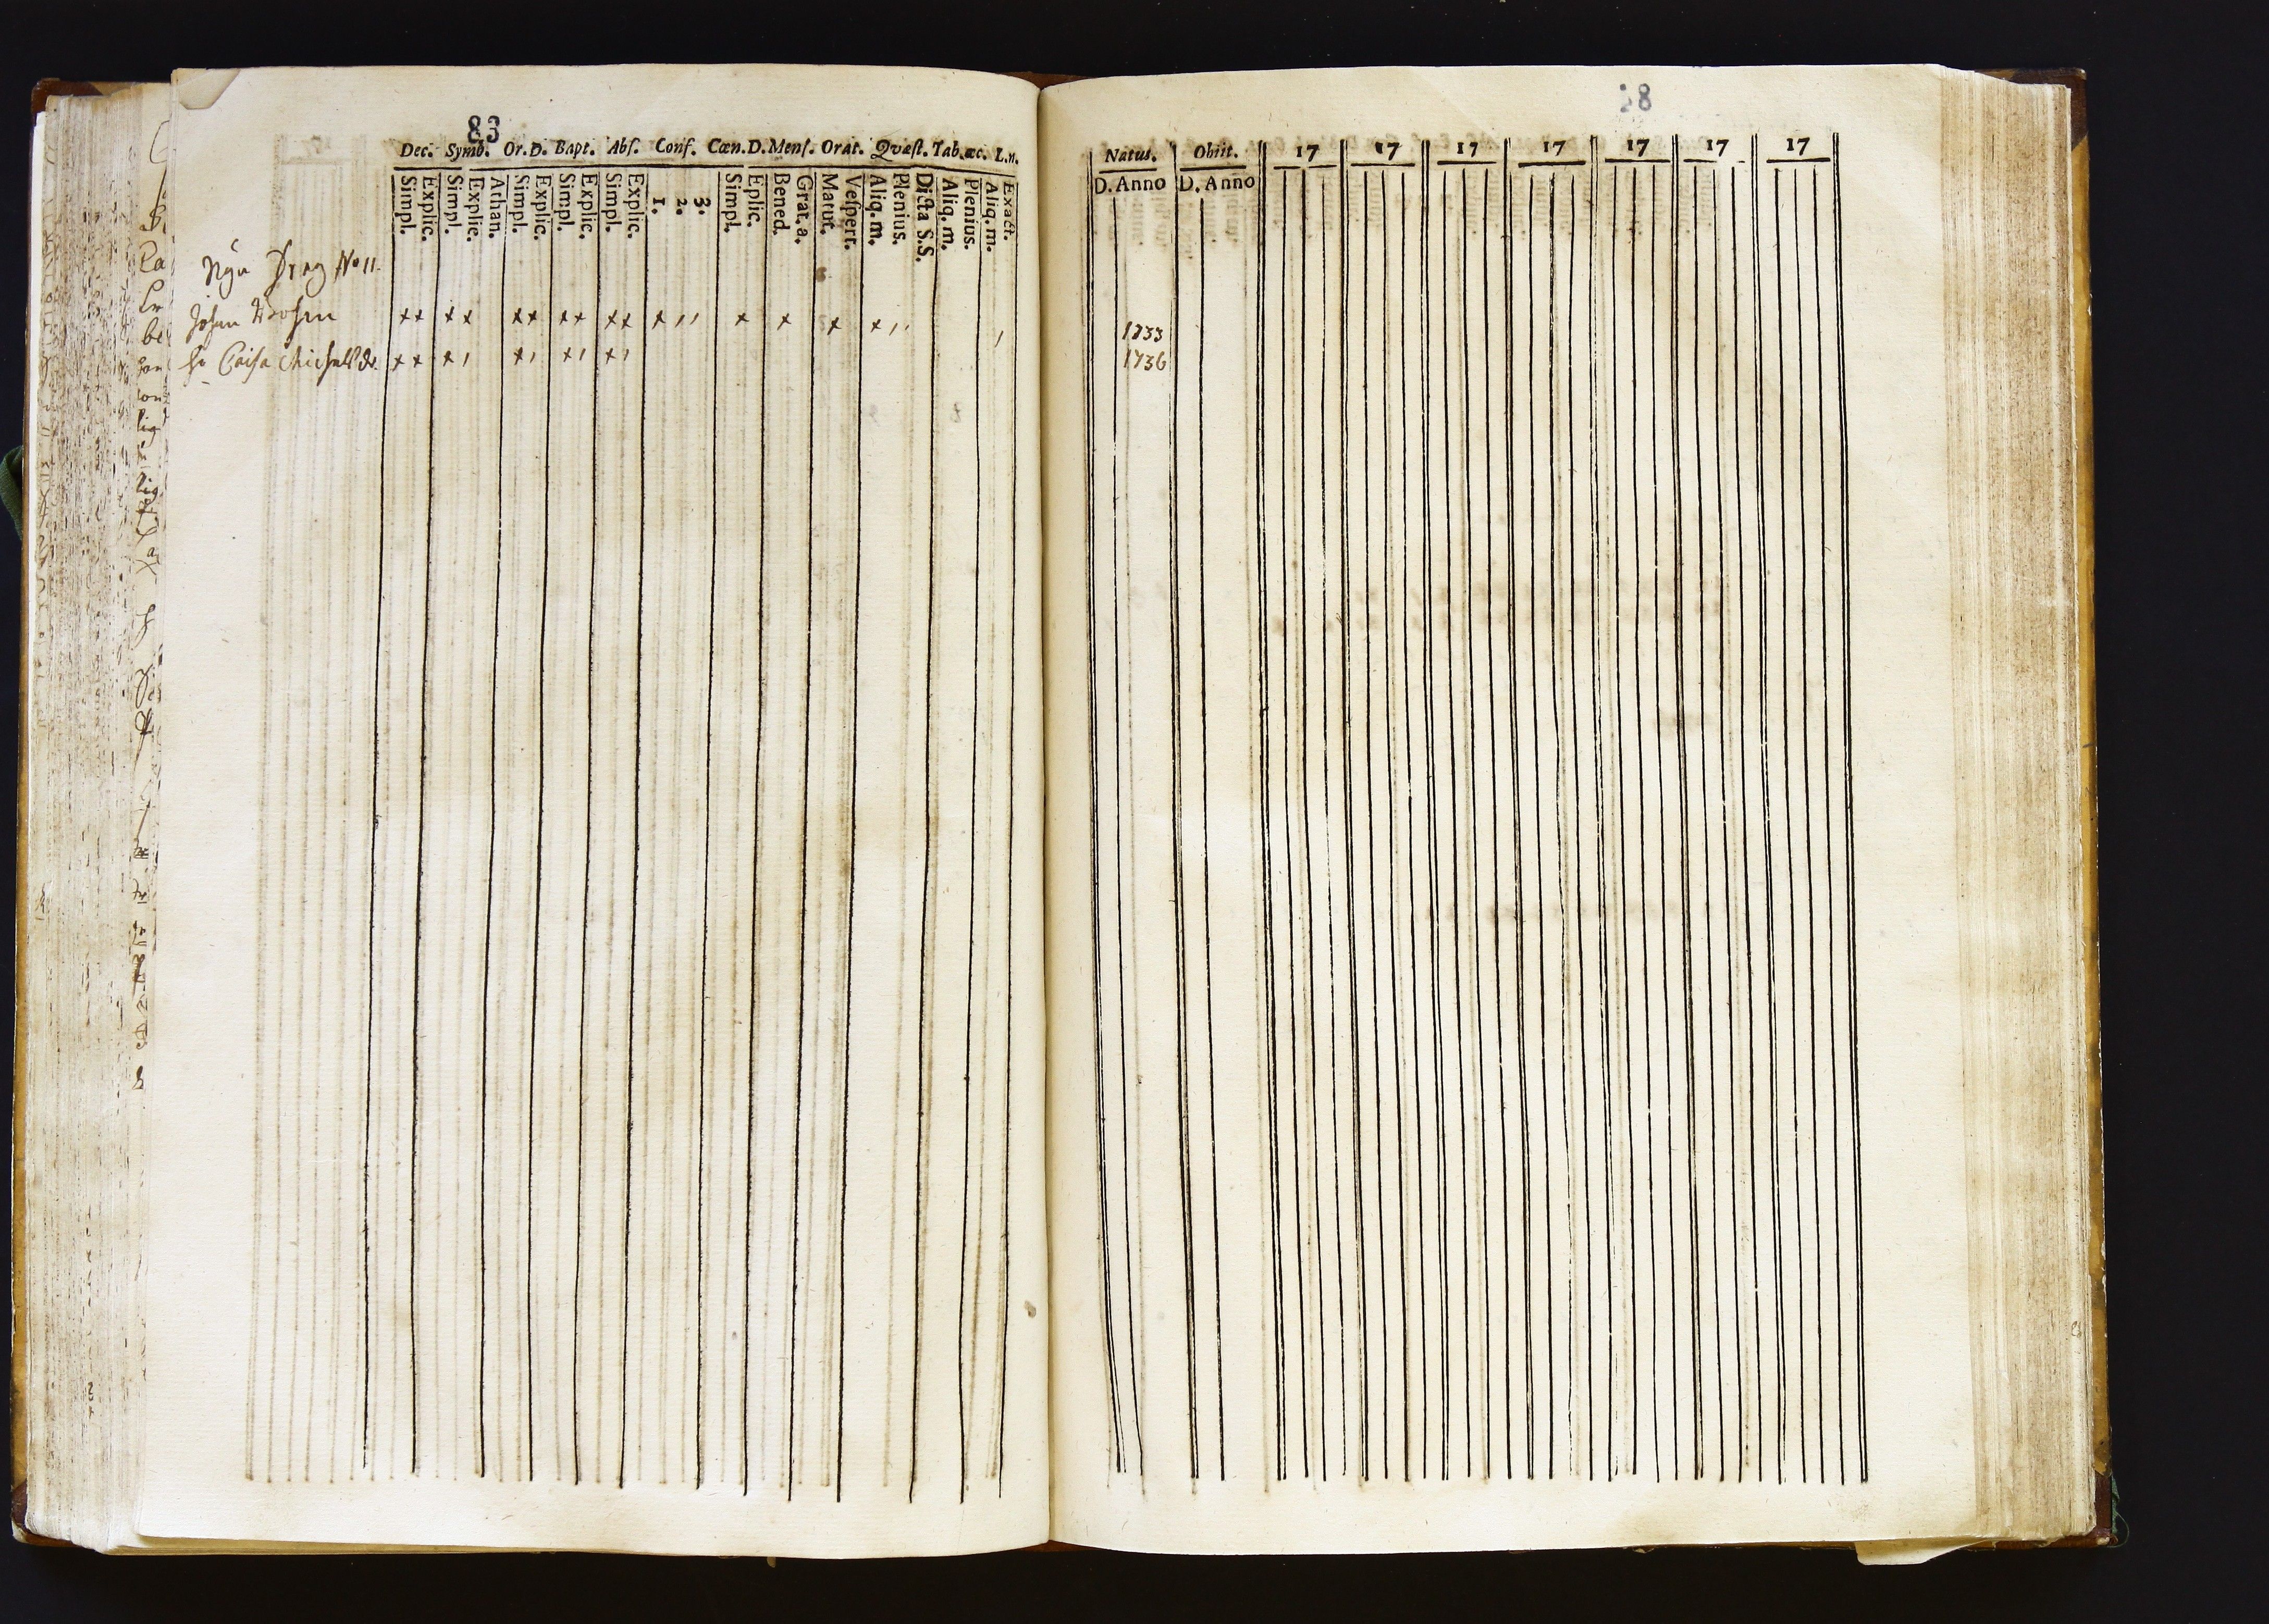 83
Dec. Symb. Or. D. Bapt. Abſ. Conf. Cœn. D. Menſ. Orat. Qvæſt. Tab. œc. L. n.
Simpl. Explic. Simpl. Explic. Athan. Simpl. Explic. Simpl. Explic. Simpl. Explic. 1. 2. 3. Simpl. Eplic. Bened. Grat. a. Matut. Veſpert. Aliq. m. Plenius. Dicta S.S. Aliq. m. Plenius. Aliq. m. Exact.
Nya Dreg No 11.
Johan
hu Caisa Michelsdr.
38
Natus. Obiit. 17 17 17 17 17 17 17
D. Anno D. Anno
1733
1736